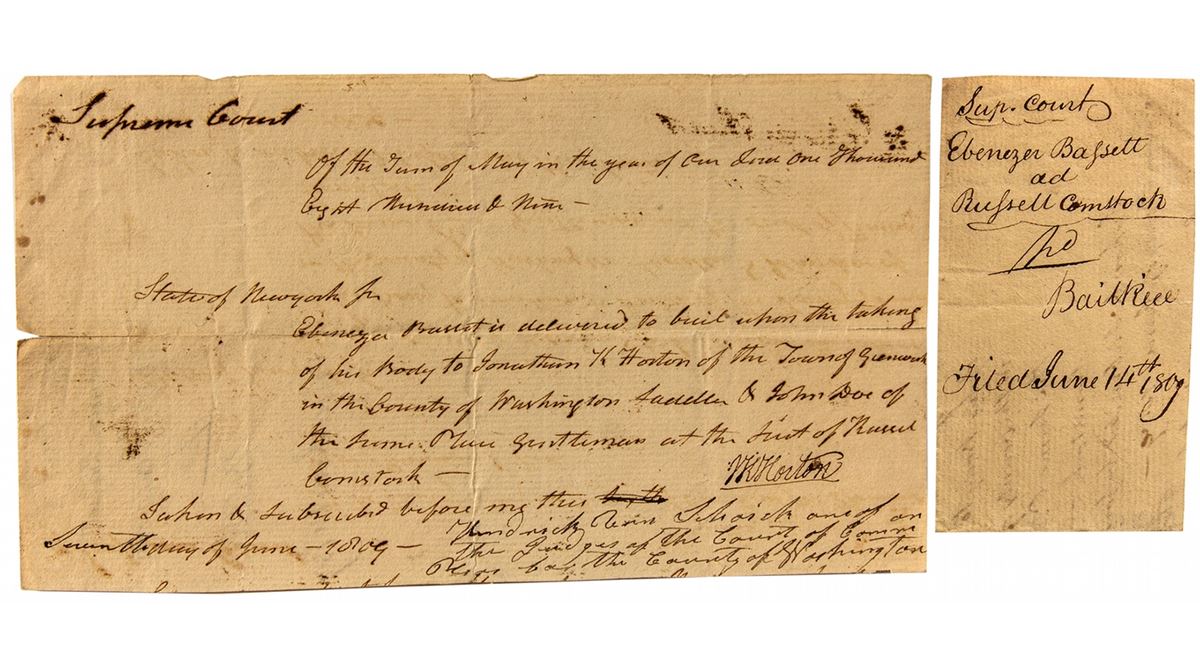 Supreme Court
Of the Term of May in the year of Our Lord One Thousand
Eight Hundred & Nine –
State of Newyork ss
Ebenezer Bassit is delivered to bail upon the taking
of his Body to Jonathan K Horton of the Town of Greenwich
in the County of Washington Sadeller & John Doe of
the same Place Gentleman at the Suit of Russel
Comstock –
JK Horton
Taken & Subscribed before me this
Seventh day of June – 1809 –
Hendrick Schaick one of
the Judges of the Court of Comm
Pleas for the County of Washington
Sup. Court
Ebenezer Bassett
ad
Russell Comstock
Bail Piece
Filed June 14th 1809